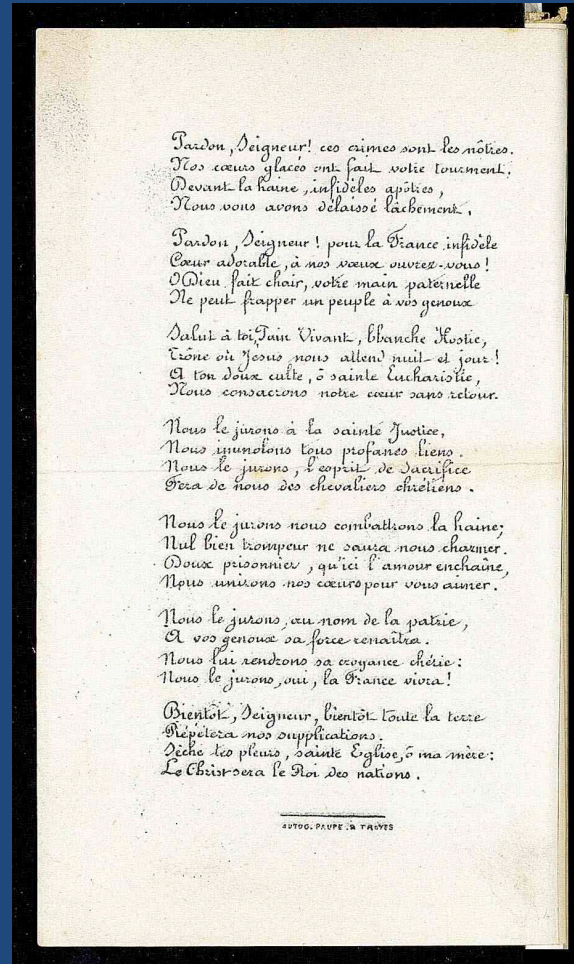 Pardon, Seigneur! ces crimes sont les nôtres.
Nos cœurs glacés ont fait votre tourment.
Devant la haine, infidèles apôtres,
Nous vous avons délaissé lâchement.
Pardon, Seigneur! pour la France infidèle
Cœur adorable, à nos vœux ouvrez-vous!
O Dieu fait chair, votre main paternelle
Ne peut frapper un peuple à vos genoux
Salut à toi, Pain Vivant, blanche Hostie,
Trône où Jésus nous attend nuit et jour!
A ton doux culte, ô sainte Eucharistie,
Nous consacrons notre cœur sans retour.
Nous le jurons à la sainte Justice,
Nous immolons tous profanes liens.
Nous le jurons, l'esprit de Sacrifice
Fera de nous des chevaliers chrétiens.
Nous le jurons nous combattrons la haine;
Nul bien trompeur ne saura nous charmer.
Doux prisonnier, qu'ici l'amour enchaîne,
Nous unirons nos cœurs pour vous aimer.
Nous le jurons, au nom de la patrie,
A vos genoux sa force renaîtra.
Nous lui rendrons sa croyance chérie:
Nous le jurons, oui, la France vivra!
Bientôt, Seigneur, bientôt toute la terre
Répètera nos supplications.
Sèche tes pleurs, sainte Eglise, ô ma mère:
Le Christ sera le Roi des nations.
AUTOG. PAUPE. A TROYES